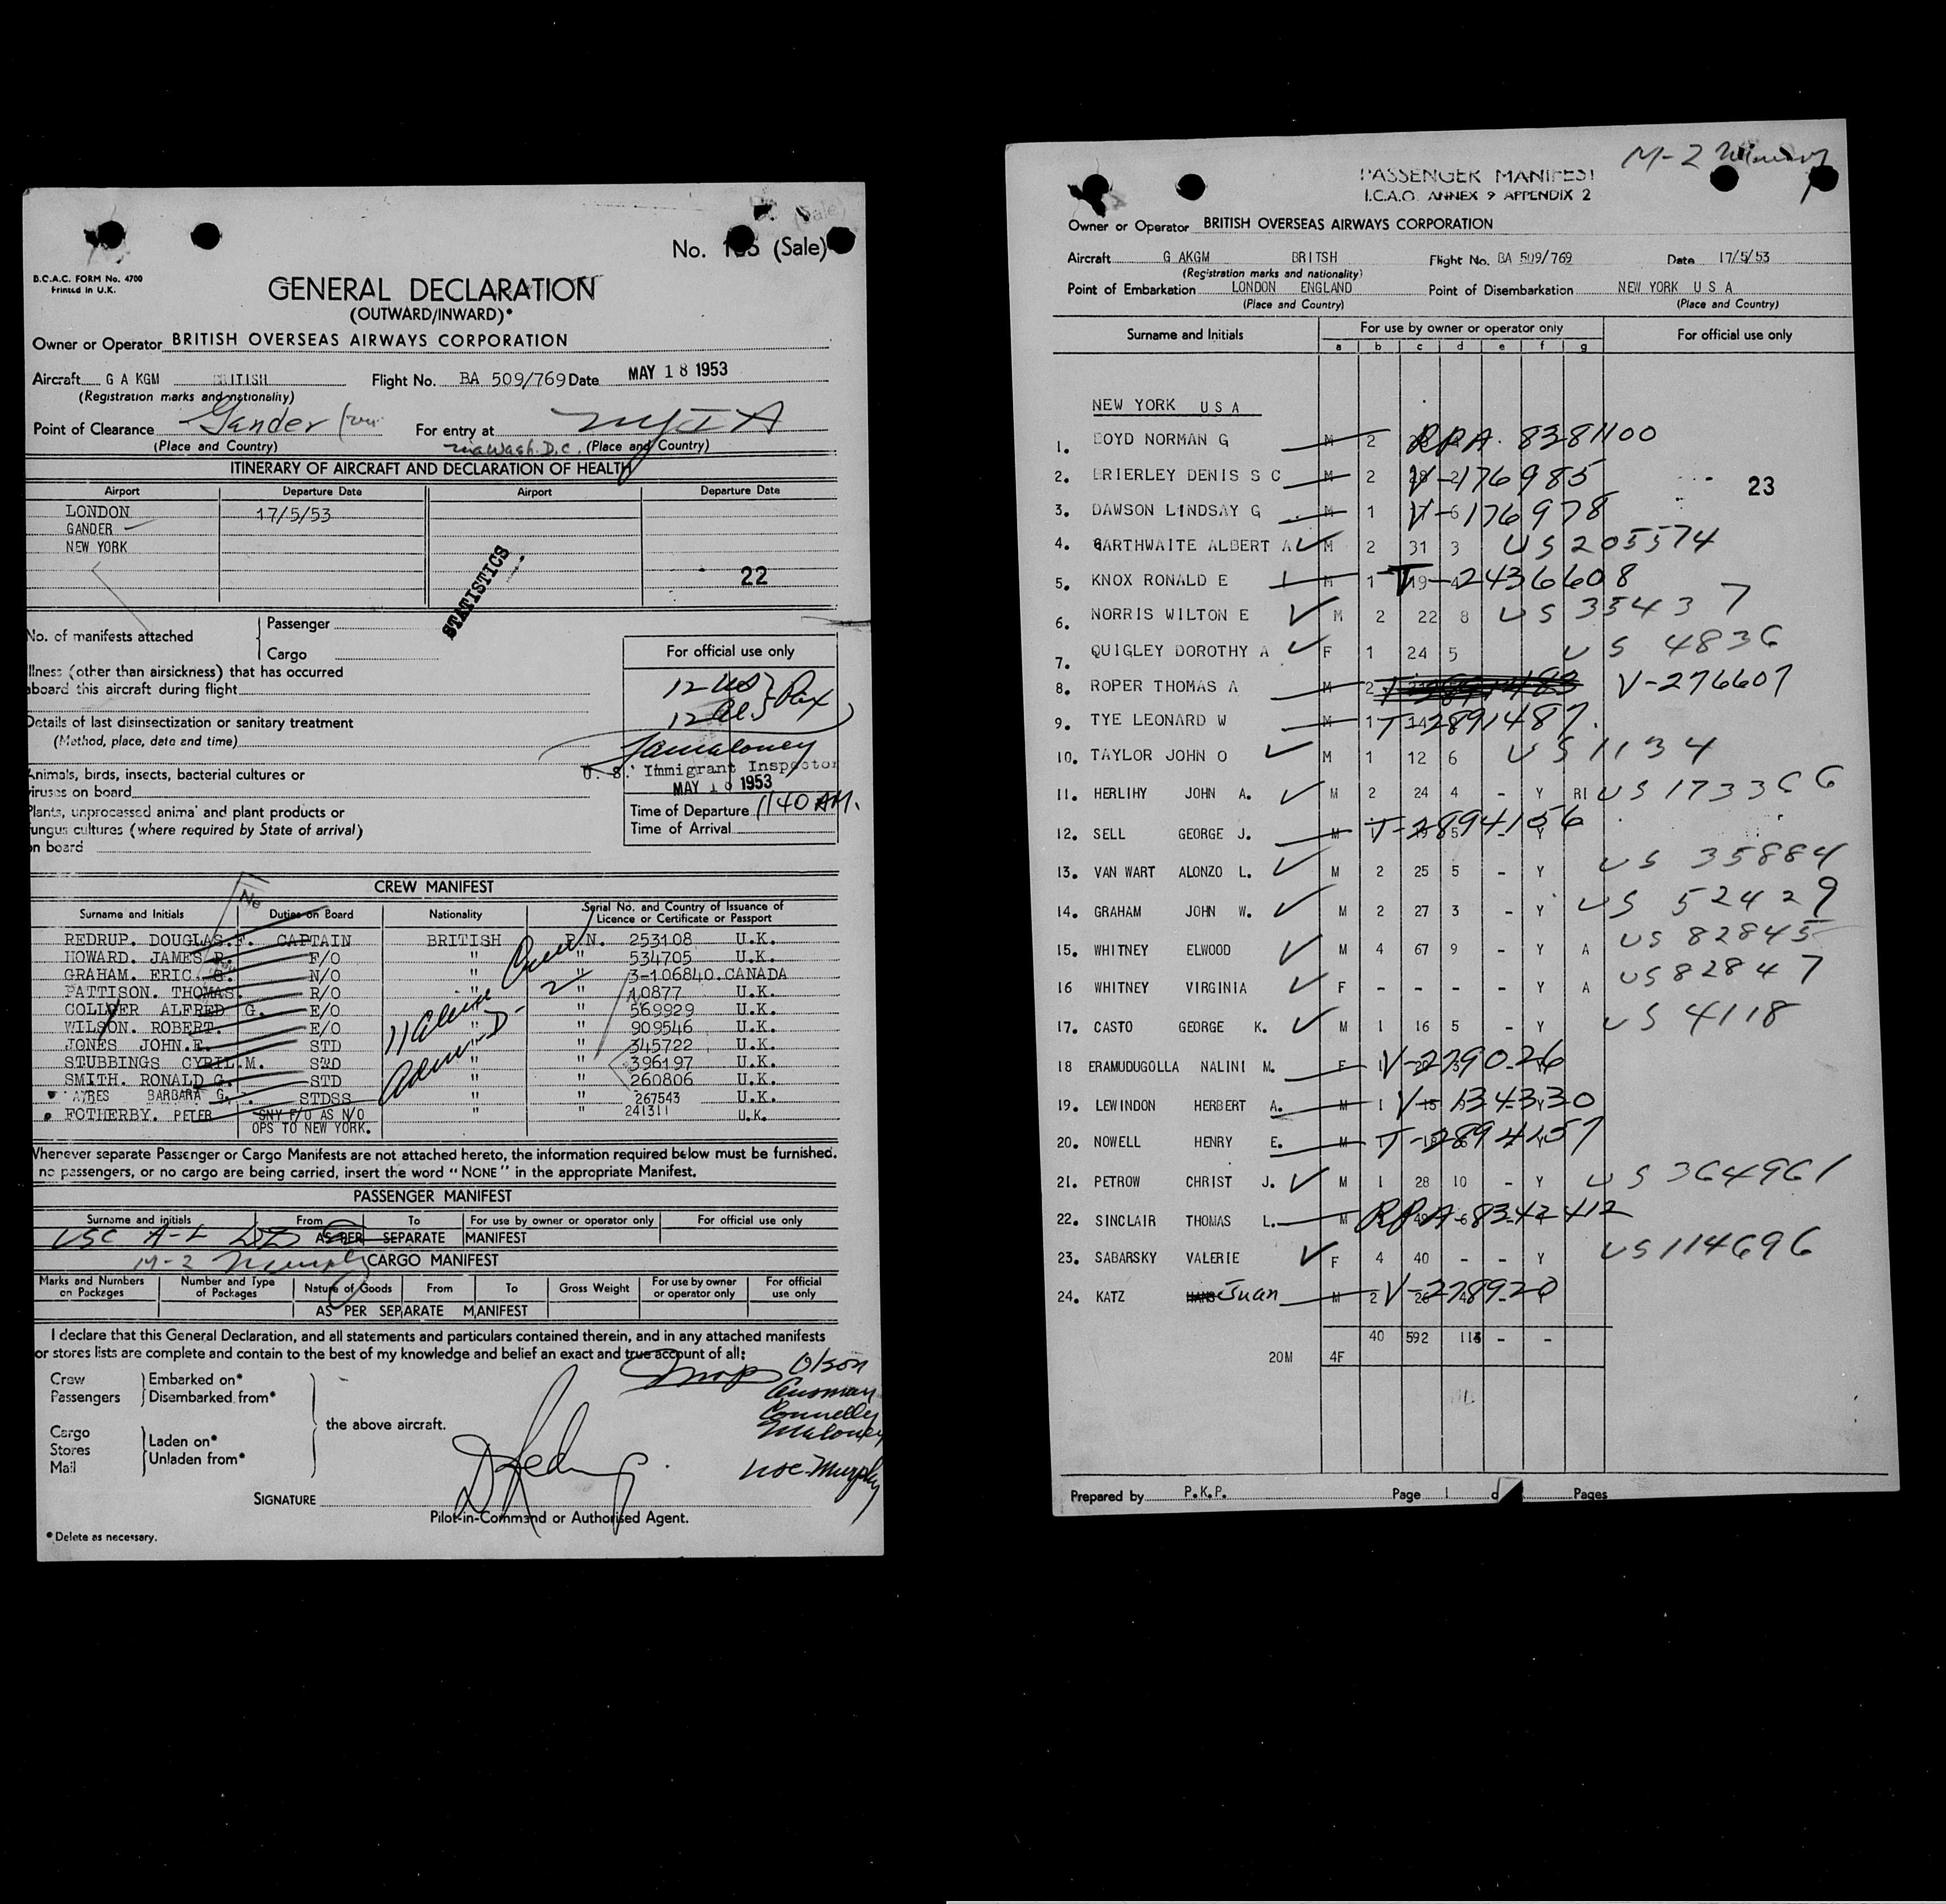 No. (Sale)
B.C.A.C. FORM No. 4700
Printed in U.K.
GENERAL DECLARATION
(OUTWARD/INWARD)*
Owner or Operator BRITISH OVERSEAS AIRWAYS CORPORATION
Aircraft G A KGM BRITISH Flight No. BA 509/769 Date MAY 18 1953
(Registration marks and nationality)
Point of Clearance Gander For entry at
(Place and Country) via Wash. D.C. (Place and Country)
ITINERARY OF AIRCRAFT AND DECLARATION OF HEALTH
Airport Departure Date Airport Departure Date
LONDON 17/5/53
GANDER
NEW YORK
STATISTICS
22
No. of manifests attached Passenger
Cargo
For official use only
Illness (other than airsickness) that has occurred
aboard this aircraft during flight
12 US
12 Al.
Details of last disinsectization or sanitary treatment
(Method, place, date and time)
Jamaloney
U. S. Immigrant Inspector
MAY 18 1953
Animals, birds, insects, bacterial cultures or
viruses on board
Time of Departure 1140 AM.
Time of Arrival
Plants, unprocessed animal and plant products or
fungus cultures (where required by State of arrival)
on board
CREW MANIFEST
Surname and Initials Duties on Board Nationality Serial No. and Country of Issuance of
Licence or Certificate or Passport
REDRUP. DOUGLAS.F. CAPTAIN BRITISH P.N. 253108 U.K.
HOWARD. JAMES R. F/O " " 534705 U.K.
GRAHAM. ERIC. S. N/O " " 3-106840. CANADA
PATTISON. THOMAS. R/O " " A0877 U.K.
COLLYER ALFRED G. E/O " " 569929 U.K.
WILSON. ROBERT. E/O " " 909546 U.K.
JONES JOHN.E. STD " " 345722 U.K.
STUBBINGS CYRIL.M. STD " " 396197 U.K.
SMITH. RONALD G. STD " " 260806 U.K.
AYRES BARBARA G. STDSS " " 267543 U.K.
FOTHERBY. PETER SNY F/O AS N/O " " 241311 U.K.
OPS TO NEW YORK.
Whenever separate Passenger or Cargo Manifests are not attached hereto, the information required below must be furnished.
no passengers, or no cargo are being carried, insert the word "NONE" in the appropriate Manifest.
PASSENGER MANIFEST
Surname and initials From To For use by owner or operator only For official use only
USC A-L AS PER SEPARATE MANIFEST
M-2 Murphy CARGO MANIFEST
Marks and Numbers on Packages Number and Type of Packages Nature of Goods From To Gross Weight For use by owner or operator only For official use only
AS PER SEPARATE MANIFEST
I declare that this General Declaration, and all statements and particulars contained therein, and in any attached manifests
or stores lists are complete and contain to the best of my knowledge and belief an exact and true account of all;
Crew Embarked on*
Passengers Disembarked from*
the above aircraft.
Cargo
Stores Laden on*
Mail Unladen from*
Olson
Connelly
Maloney
Murphy
SIGNATURE
Pilot-in-Command or Authorised Agent.
* Delete as necessary.
M-2
PASSENGER MANIFEST
I.C.A.O. ANNEX 9 APPENDIX 2
Owner or Operator BRITISH OVERSEAS AIRWAYS CORPORATION
Aircraft G AKGM BRITSH Flight No. BA 509/769 Date 17/5/53
(Registration marks and nationality)
Point of Embarkation LONDON ENGLAND Point of Disembarkation NEW YORK U S A
(Place and Country) (Place and Country)
Surname and Initials For use by owner or operator only For official use only
a b c d e f g
NEW YORK U S A
1. BOYD NORMAN G M 2 RPA. 8381100
2. BRIERLEY DENIS S C M 2 V-176985
23
3. DAWSON LINDSAY G M 1 V-176978
4. GARTHWAITE ALBERT A M 2 31 3 US 205574
5. KNOX RONALD E M 1 19 4 T-2436608
6. NORRIS WILTON E M 2 22 8 US 35437
7. QUIGLEY DOROTHY A F 1 24 5 US 4836
8. ROPER THOMAS A M 2 V-276607
9. TYE LEONARD W M 1 14 T-2891487.
10. TAYLOR JOHN O M 1 12 6 US 1134
11. HERLIHY JOHN A. M 2 24 4 - Y RI US 173366
12. SELL GEORGE J. M 1 5 - Y T-2894156
13. VAN WART ALONZO L. M 2 25 5 - Y US 35884
14. GRAHAM JOHN W. M 2 27 3 - Y US 52429
15. WHITNEY ELWOOD M 4 67 9 - Y A US 82845
16 WHITNEY VIRGINIA F - - - - Y A US 82847
17. CASTO GEORGE K. M 1 16 5 - Y US 4118
18 ERAMUDUGOLLA NALINI M. F 1 V-229026
19. LEWINDON HERBERT A. M 1 15 V-134330
20. NOWELL HENRY E. M 1 T-2894157
21. PETROW CHRIST J. M 1 28 10 - Y US 364961
22. SINCLAIR THOMAS L. M RPA-8342412
23. SABARSKY VALERIE F 4 40 - - Y US 114696
24. KATZ HANS Juan M 2 V-228920
40 592 - -
20M 4F
Prepared by P.K.P. Page 1 of Pages